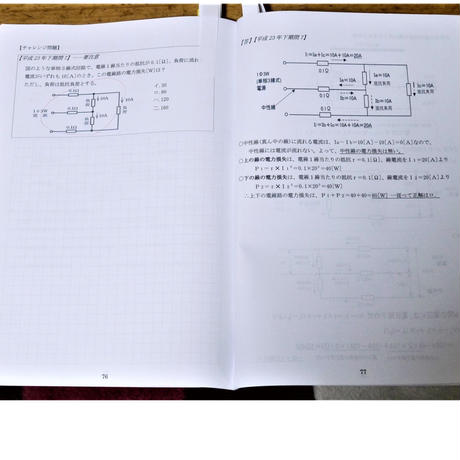 【チャレンジ問題】
【平成23年下期問7】――要注意
図のような単相3線式回路で、電線1線当たりの抵抗が0.1[Ω]、負荷に流れる
電流がいずれも10[A]のとき、この電線路の電力損失[W]は？
ただし、負荷は抵抗負荷とする。
イ.
ロ. 80
ハ. 120
ニ. 160
0.1Ω
10A
1Φ3W
電源
0.1Ω
10A
0.1Ω
10A
76
【解】【平成23年下期問7】
I₁=Ia+Ic=10A+10A=20A
0.1Ω
1Φ3W
(単相3線式)
電源
中性線
0.1Ω
0.1Ω
Ia=10A
抵抗負荷
Ib=10A
抵抗負荷
Ic=10A
抵抗負荷
=10A+10A=20A
○中性線(真ん中の線)に流れる電流は、Ia-Ib=10[A]-10[A]=0[A]なので、
中性線には電流が流れない。よって、中性線の電力損失は無い。
○上の線の電力損失は、電線1線当たりの抵抗r=0.1[Ω]、線電流をI₁=20[A]より
P₁=r×I₁²=0.1×20²=40[W]
○下の線の電力損失は、電線1線当たりの抵抗r=0.1[Ω]、線電流を=20[A]より
P₂=r×=0.1×20²=40[W]
∴上下の電線路の電力損失は、P₁+P₂=40+40=80[W]
77